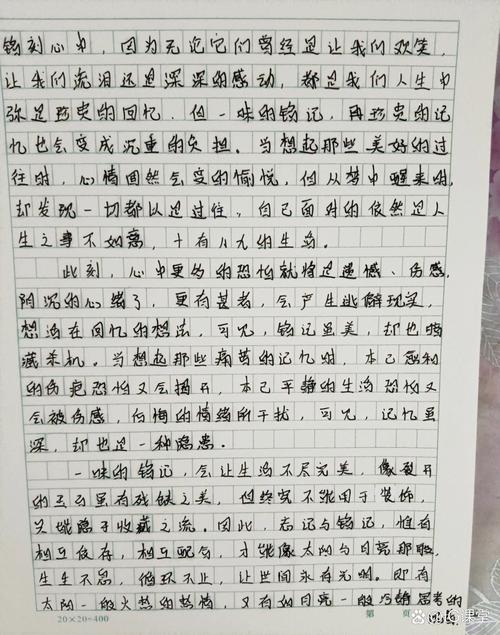 铭刻心中，因为无论它们曾经是让我们欢笑，
让我们流泪还是深深的感动，都是我们人生中
弥足珍贵的回忆，但一味的铭记，再珍贵的记
忆也会变成沉重的负担。当想起那些美好的过
往时，心情固然会变的愉悦，但从梦中醒来时，
却发现一切都以是过往，自己面对的依然是人
生之事不如意，十有八九的生活。
此刻，心中更多的恐怕就将是遗憾、伤感，
阴沉的心绪了，更有甚者，会产生逃避现实，
想活在回忆的想法，可见，铭记虽美，却也暗
藏杀机。当想起那些痛苦的记忆时，本已愈和
的伤疤恐怕又会揭开，本已平静的生活恐怕又
会被伤感，后悔的情绪所干扰，可见，记忆虽
深，却也是一种隐患。
一味的铭记，会让生活不尽完美，像裂开
的玉石虽有残缺之美，但终究不能用于装饰，
只能隐于收藏之流。因此，忘记与铭记，惟有
相互依存，相互配合，才能像太阳与月亮那般，
生生不息，循环不止，让世间永有光明。即有
太阳一般火热的热情，又有如月亮一般冷静思考的
20×20=400
第 页
课堂